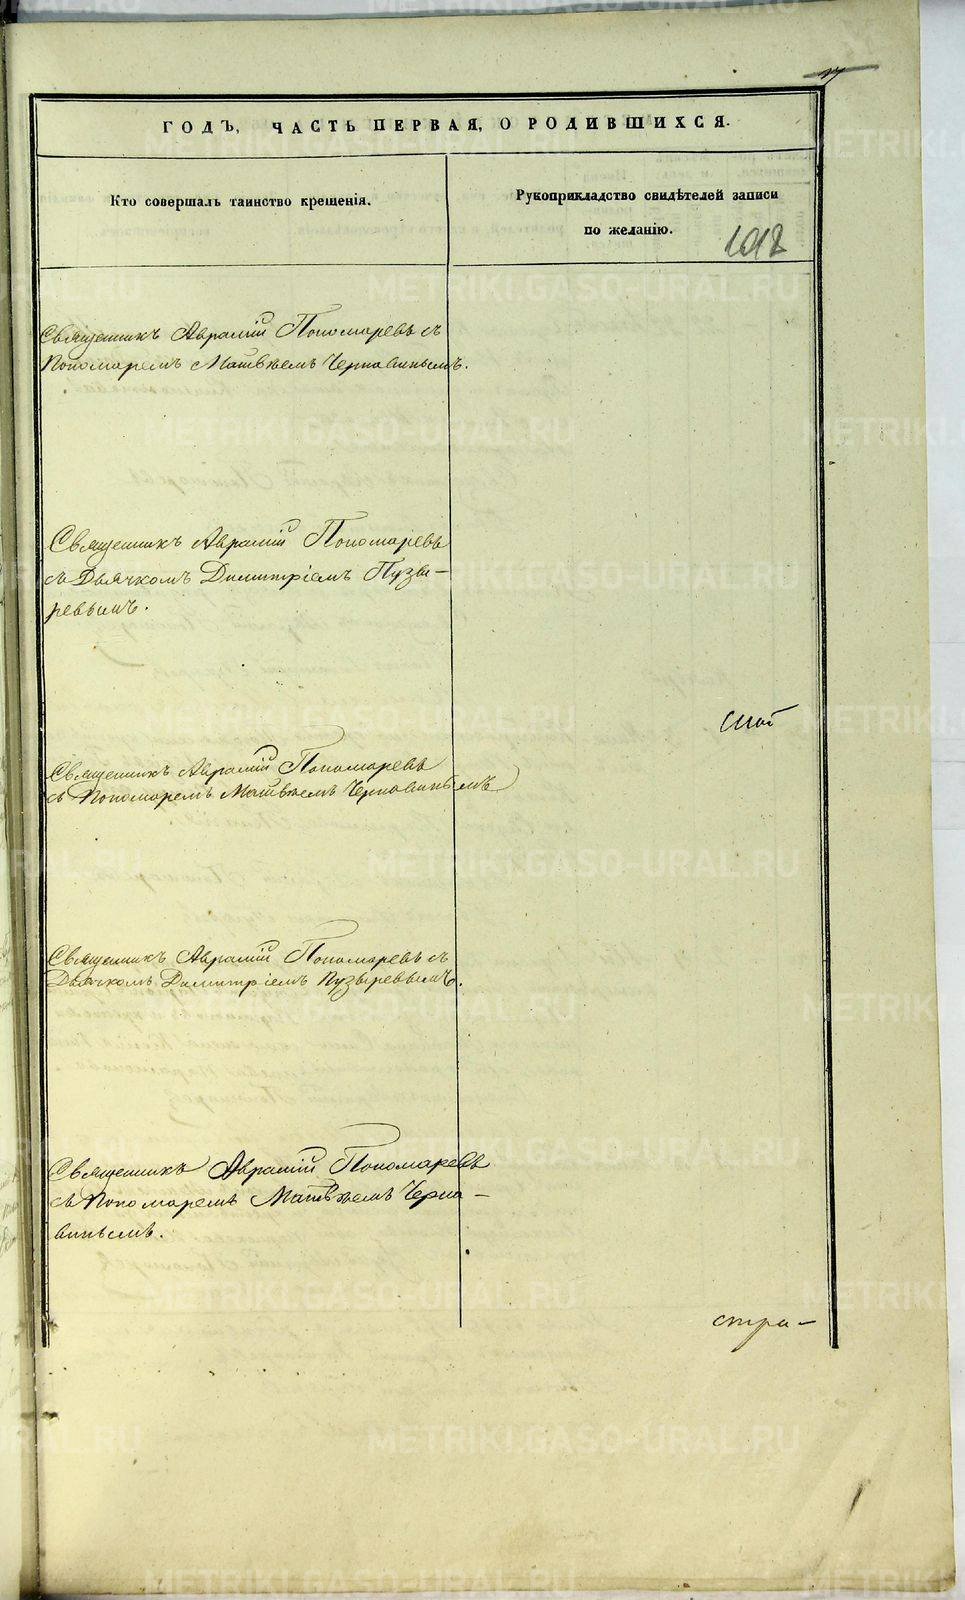 ГОДЪ, ЧАСТЬ ПЕРВАЯ, О РОДИВШИХСЯ.
Кто совершалъ таинство крещенія.
Рукоприкладство свидѣтелей записи
по желанію.
Священникъ Авраамій Пономаревъ съ
Пономаремъ Матвѣемъ Чернавинымъ.
Священникъ Авраамій Пономаревъ
съ Дьячкомъ Димитріемъ Пузы-
ревымъ.
Священникъ Авраамій Пономаревъ
съ Пономаремъ Матвѣемъ Чернавинымъ
Священникъ Авраамій Пономаревъ съ
Дьячкомъ Димитріемъ Пузыревымъ.
Священникъ Авраамій Пономаревъ
съ Пономаремъ Матвѣемъ Черна-
винымъ.
стра-
METRIKI.GASO-URAL.RU